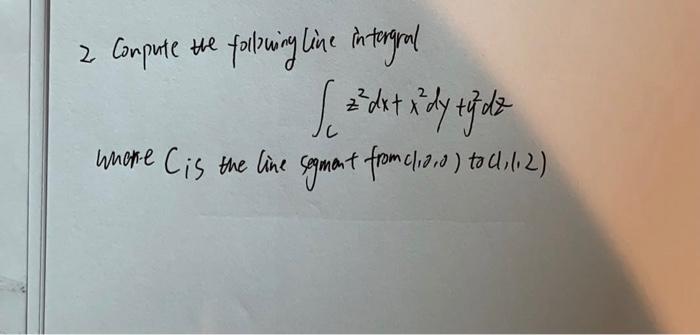 2 Conpute the following line intergral
∫_C z²dx + x²dy + y²dz
where C is the line segment from (1,0,0) to (1,1,2)